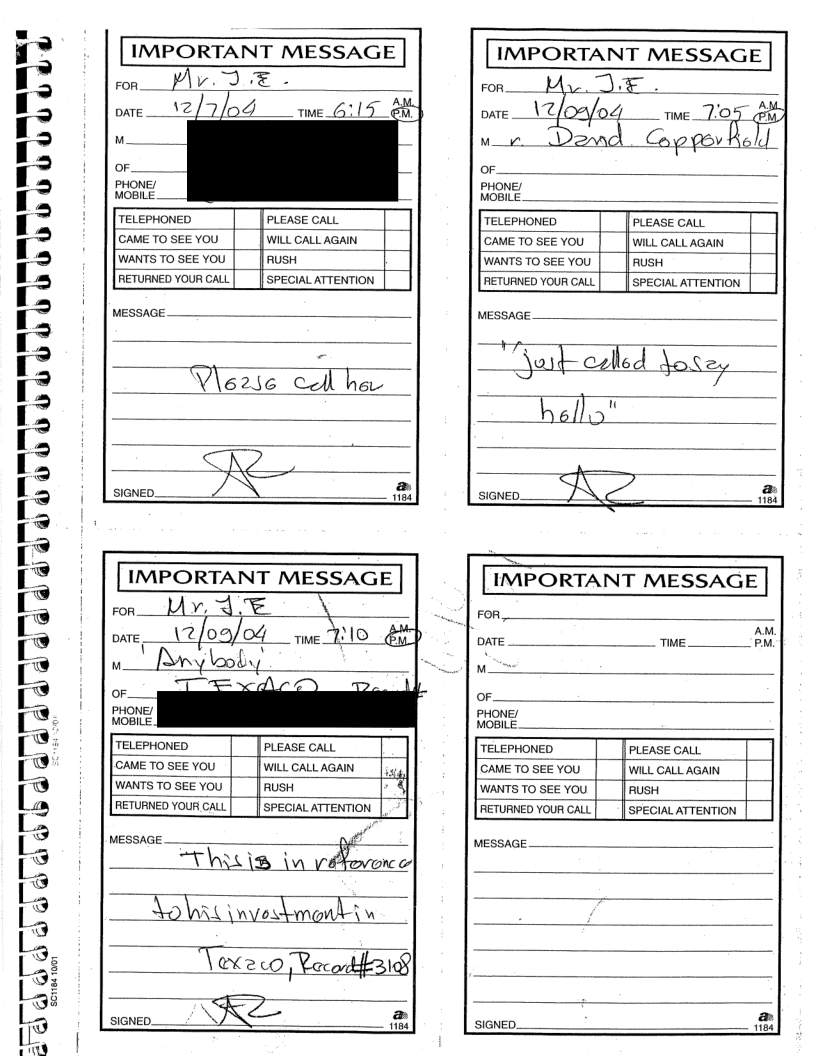 IMPORTANT MESSAGE
FOR Mr. J.E.
DATE 12/7/04 TIME 6:15 A.M. P.M.
M
OF
PHONE/
MOBILE
TELEPHONED PLEASE CALL
CAME TO SEE YOU WILL CALL AGAIN
WANTS TO SEE YOU RUSH
RETURNED YOUR CALL SPECIAL ATTENTION
MESSAGE
Please call her
SIGNED
1184
IMPORTANT MESSAGE
FOR Mr. J.E.
DATE 12/09/04 TIME 7:05 A.M. P.M.
M r. David Copperfield
OF
PHONE/
MOBILE
TELEPHONED PLEASE CALL
CAME TO SEE YOU WILL CALL AGAIN
WANTS TO SEE YOU RUSH
RETURNED YOUR CALL SPECIAL ATTENTION
MESSAGE
"just called to say
hello"
SIGNED
1184
IMPORTANT MESSAGE
FOR Mr. J.E
DATE 12/09/04 TIME 7:10 A.M. P.M.
M 'Anybody'
OF TEXACO
PHONE/
MOBILE
TELEPHONED PLEASE CALL
CAME TO SEE YOU WILL CALL AGAIN
WANTS TO SEE YOU RUSH
RETURNED YOUR CALL SPECIAL ATTENTION
MESSAGE
This is in reference
to his investment in
Texaco, Record#3108
SIGNED
1184
IMPORTANT MESSAGE
FOR
DATE TIME A.M. P.M.
M
OF
PHONE/
MOBILE
TELEPHONED PLEASE CALL
CAME TO SEE YOU WILL CALL AGAIN
WANTS TO SEE YOU RUSH
RETURNED YOUR CALL SPECIAL ATTENTION
MESSAGE
SIGNED
1184
SC1184 10/01